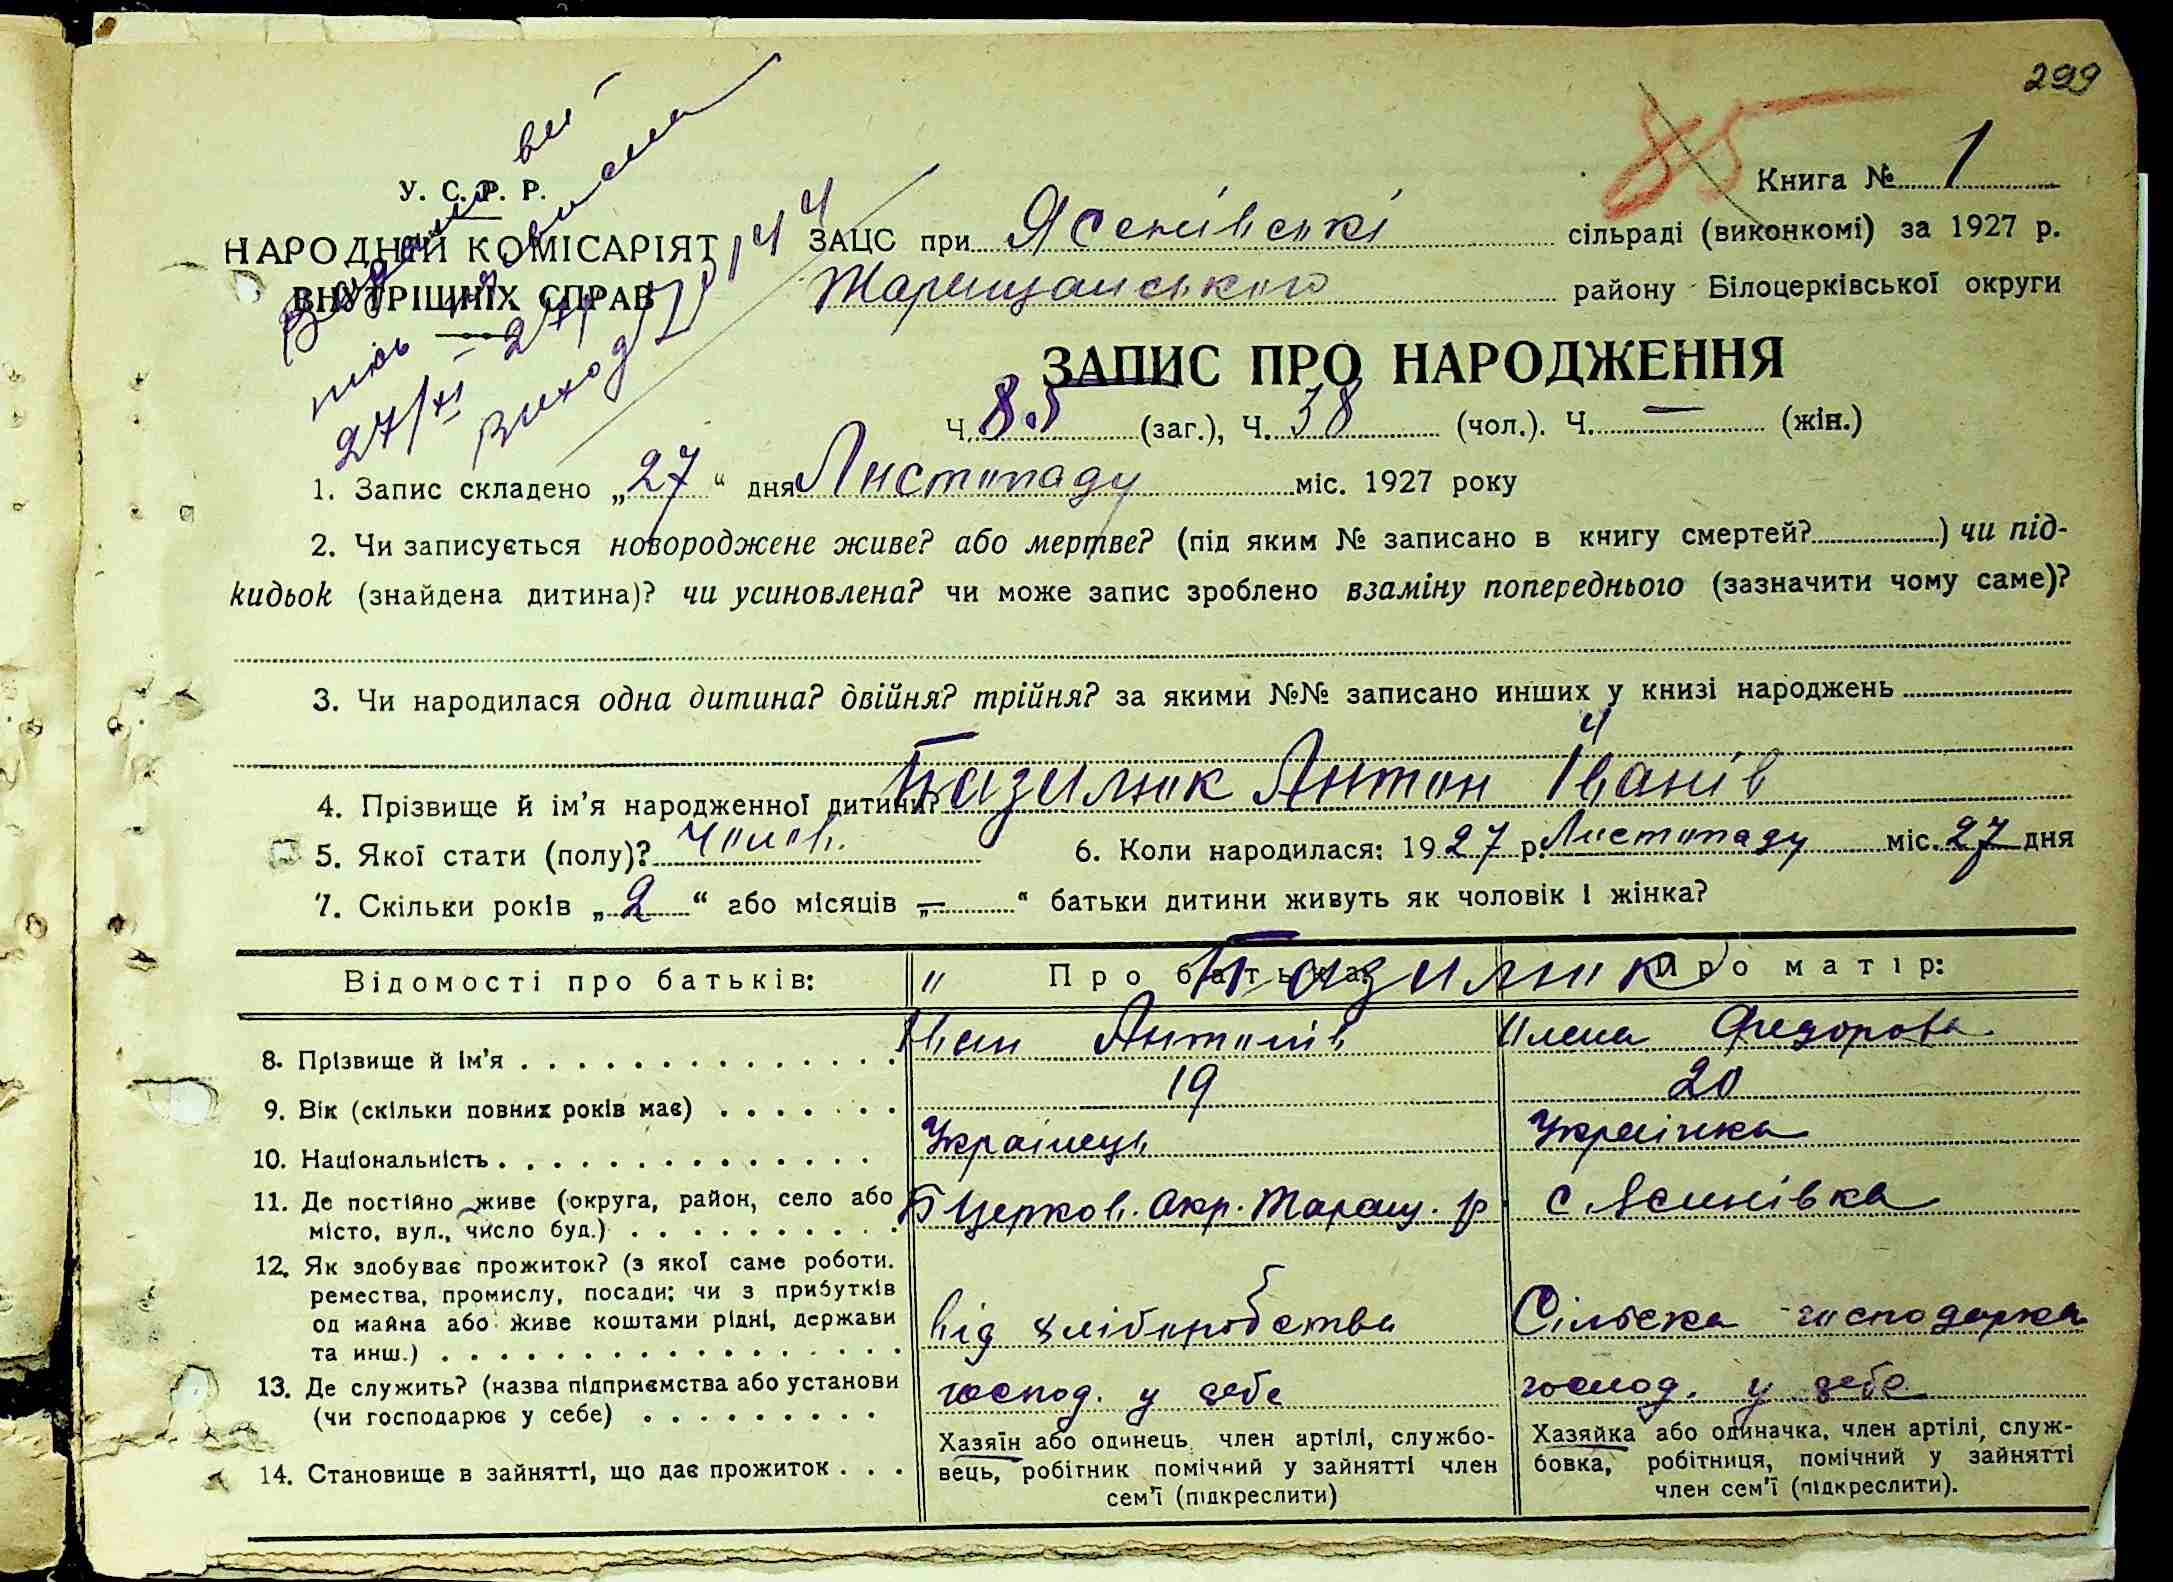 299
У. С. Р. Р.
НАРОДНІЙ КОМІСАРІЯТ
ВНУТРІШНІХ СПРАВ
27/XI - 27
85
Книга № 1
ЗАЦС при Ясенівські сільраді (виконкомі) за 1927 р.
Таращанського району Білоцерківської округи
ЗАПИС ПРО НАРОДЖЕННЯ
Ч. 85 (заг.), Ч. 38 (чол.). Ч. — (жін.)
1. Запис складено „27“ дня Листопаду міс. 1927 року
2. Чи записується новороджене живе? або мертве? (під яким № записано в книгу смертей?) чи під-
кидьок (знайдена дитина)? чи усиновлена? чи може запис зроблено взаміну попереднього (зазначити чому саме)?
3. Чи народилася одна дитина? двійня? трійня? за якими №№ записано инших у книзі народжень
4. Прізвище й ім’я народженної дитини? Базилюк Антон Іванів
5. Якої стати (полу)? Чолов. 6. Коли народилася: 1927 р. Листопаду міс. 27 дня
7. Скільки років „2“ або місяців „—“ батьки дитини живуть як чоловік і жінка?
Відомості про батьків: " Про батька: Базилюк Про матір:
8. Прізвище й ім’я Іван Антонів Олена Федорова
9. Вік (скільки повних років має) 19 20
10. Національність Українець Українка
11. Де постійно живе (округа, район, село або Б Церков. Окр. Таращ. р. с Ясинівка
місто, вул., число буд.)
12. Як здобуває прожиток? (з якої саме роботи.
ремества, промислу, посади; чи з прибутків
од майна або живе коштами рідні, держави від хліборобства Сільска господарка
та инш.)
13. Де служить? (назва підприємства або установи господ. у себе господ. у себе
(чи господарює у себе)
14. Становище в зайнятті, що дає прожиток
Хазяїн або одинець, член артілі, службо-
вець, робітник помічний у зайнятті член
сем’ї (підкреслити)
Хазяйка або одиначка, член артілі, служ-
бовка, робітниця, помічний у зайнятті
член сем’ї (підкреслити).